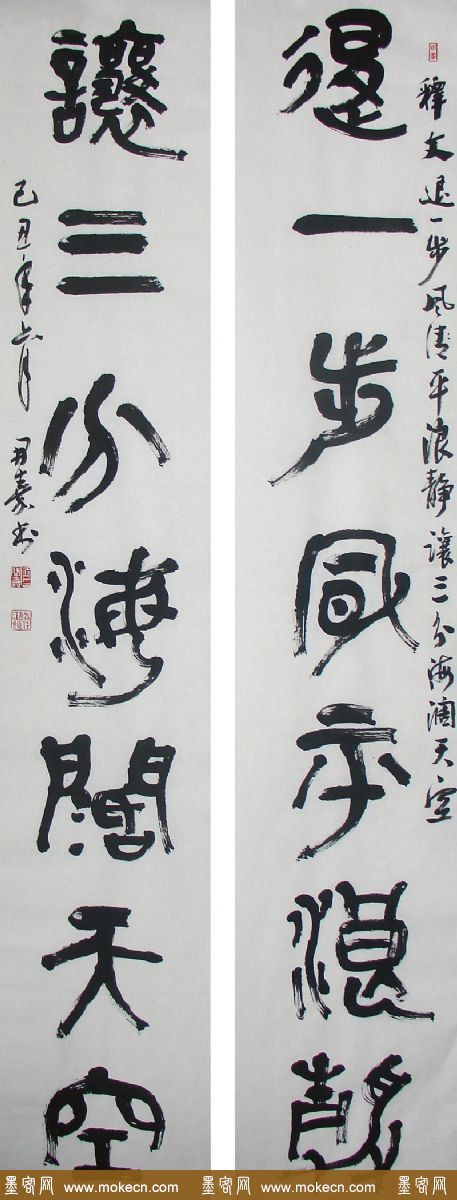 釋文退一步风清平浪静讓三分海阔天空
退一步風平浪靜
讓三分海闊天空
己丑年六月
墨客网 www.mokecn.com 墨客网 www.mokecn.com 墨客网